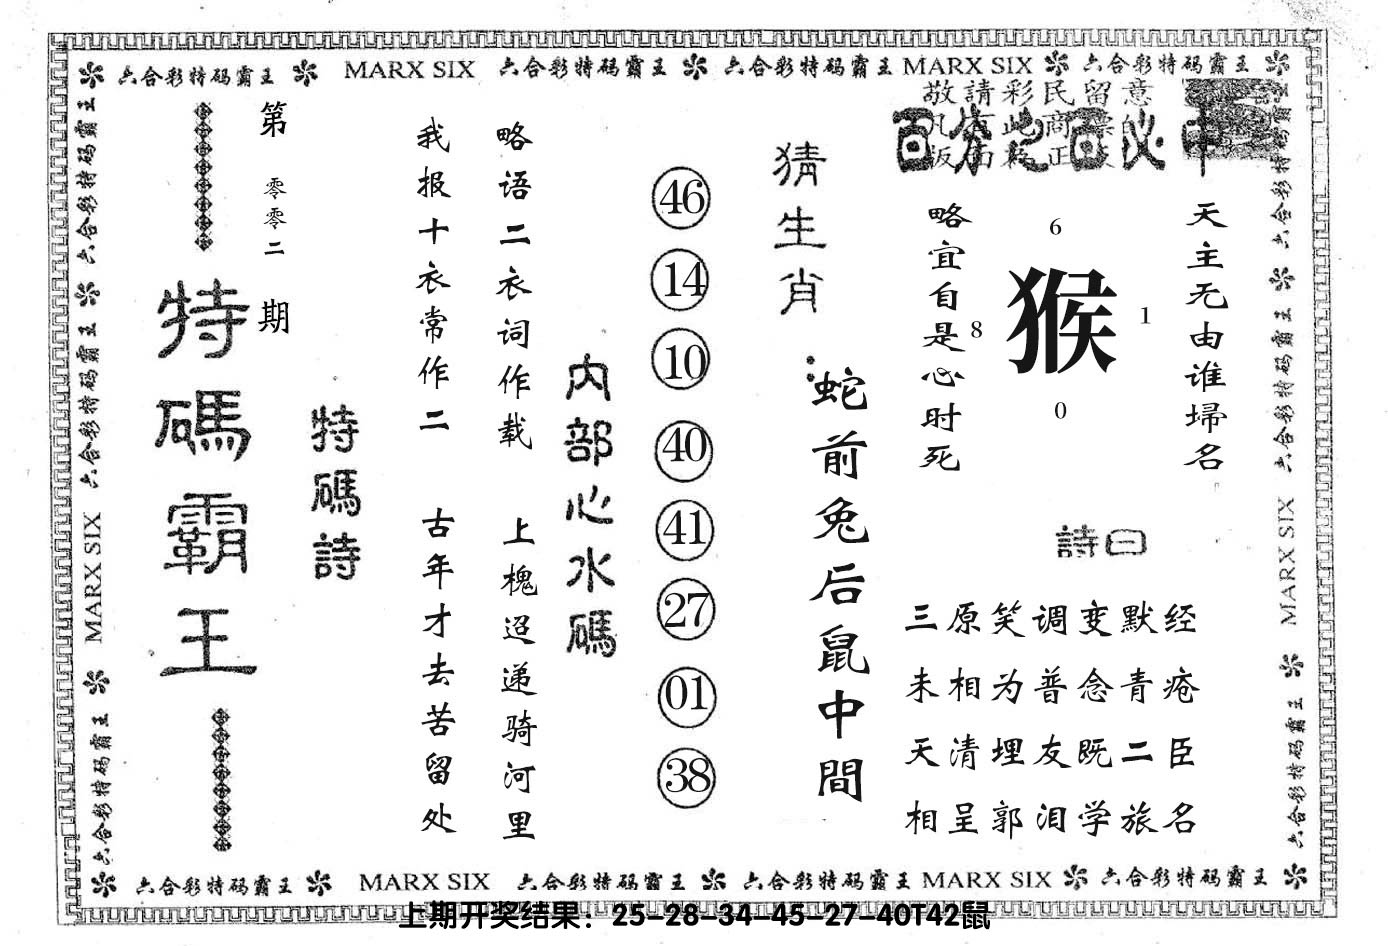 六合彩特码霸王 MARX SIX 六合彩特码霸王 六合彩特码霸王 MARX SIX 六合彩特码霸王
敬請彩民留意
百分之百必中
天主无由谁埽名
6
猴
8
1
0
略宜自是心时死
詩曰
三原笑调变默经
未相为普念青疮
天清埋友既二臣
相呈郭泪学旅名
猜生肖：
蛇前兔后鼠中間
46
14
10
40
41
27
01
38
内部心水碼
略语二衣词作载
上槐迢递骑河里
我报十衣常作二
古年才去苦留处
特碼詩
第零零二期
特碼霸王
六合彩特码霸王 六合彩特码霸王 MARX SIX 六合彩特码霸王
六合彩特码霸王 六合彩特码霸王 MARX SIX 六合彩特码霸王
六合彩特码霸王 MARX SIX 六合彩特码霸王 六合彩特码霸王 MARX SIX 六合彩特码霸王
上期开奖结果：25-28-34-45-27-40T42鼠